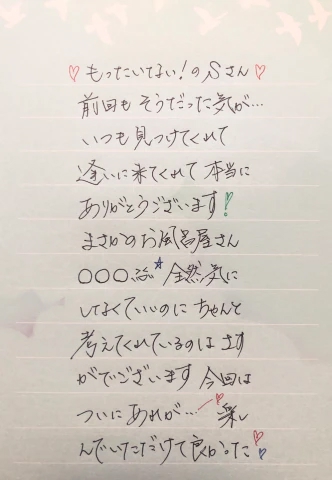 ♡もったいない！のSさん♡
前回もそうだった気が…
いつも見つけてくれて
逢いに来てくれて本当に
ありがとうございます！
まさかのお風呂屋さん
○○○ 全然気に
しなくていいのにちゃんと
考えてくれているのはさす
がでございます 今回は
ついにあれが…♡楽し
んでいただけて良かった♡